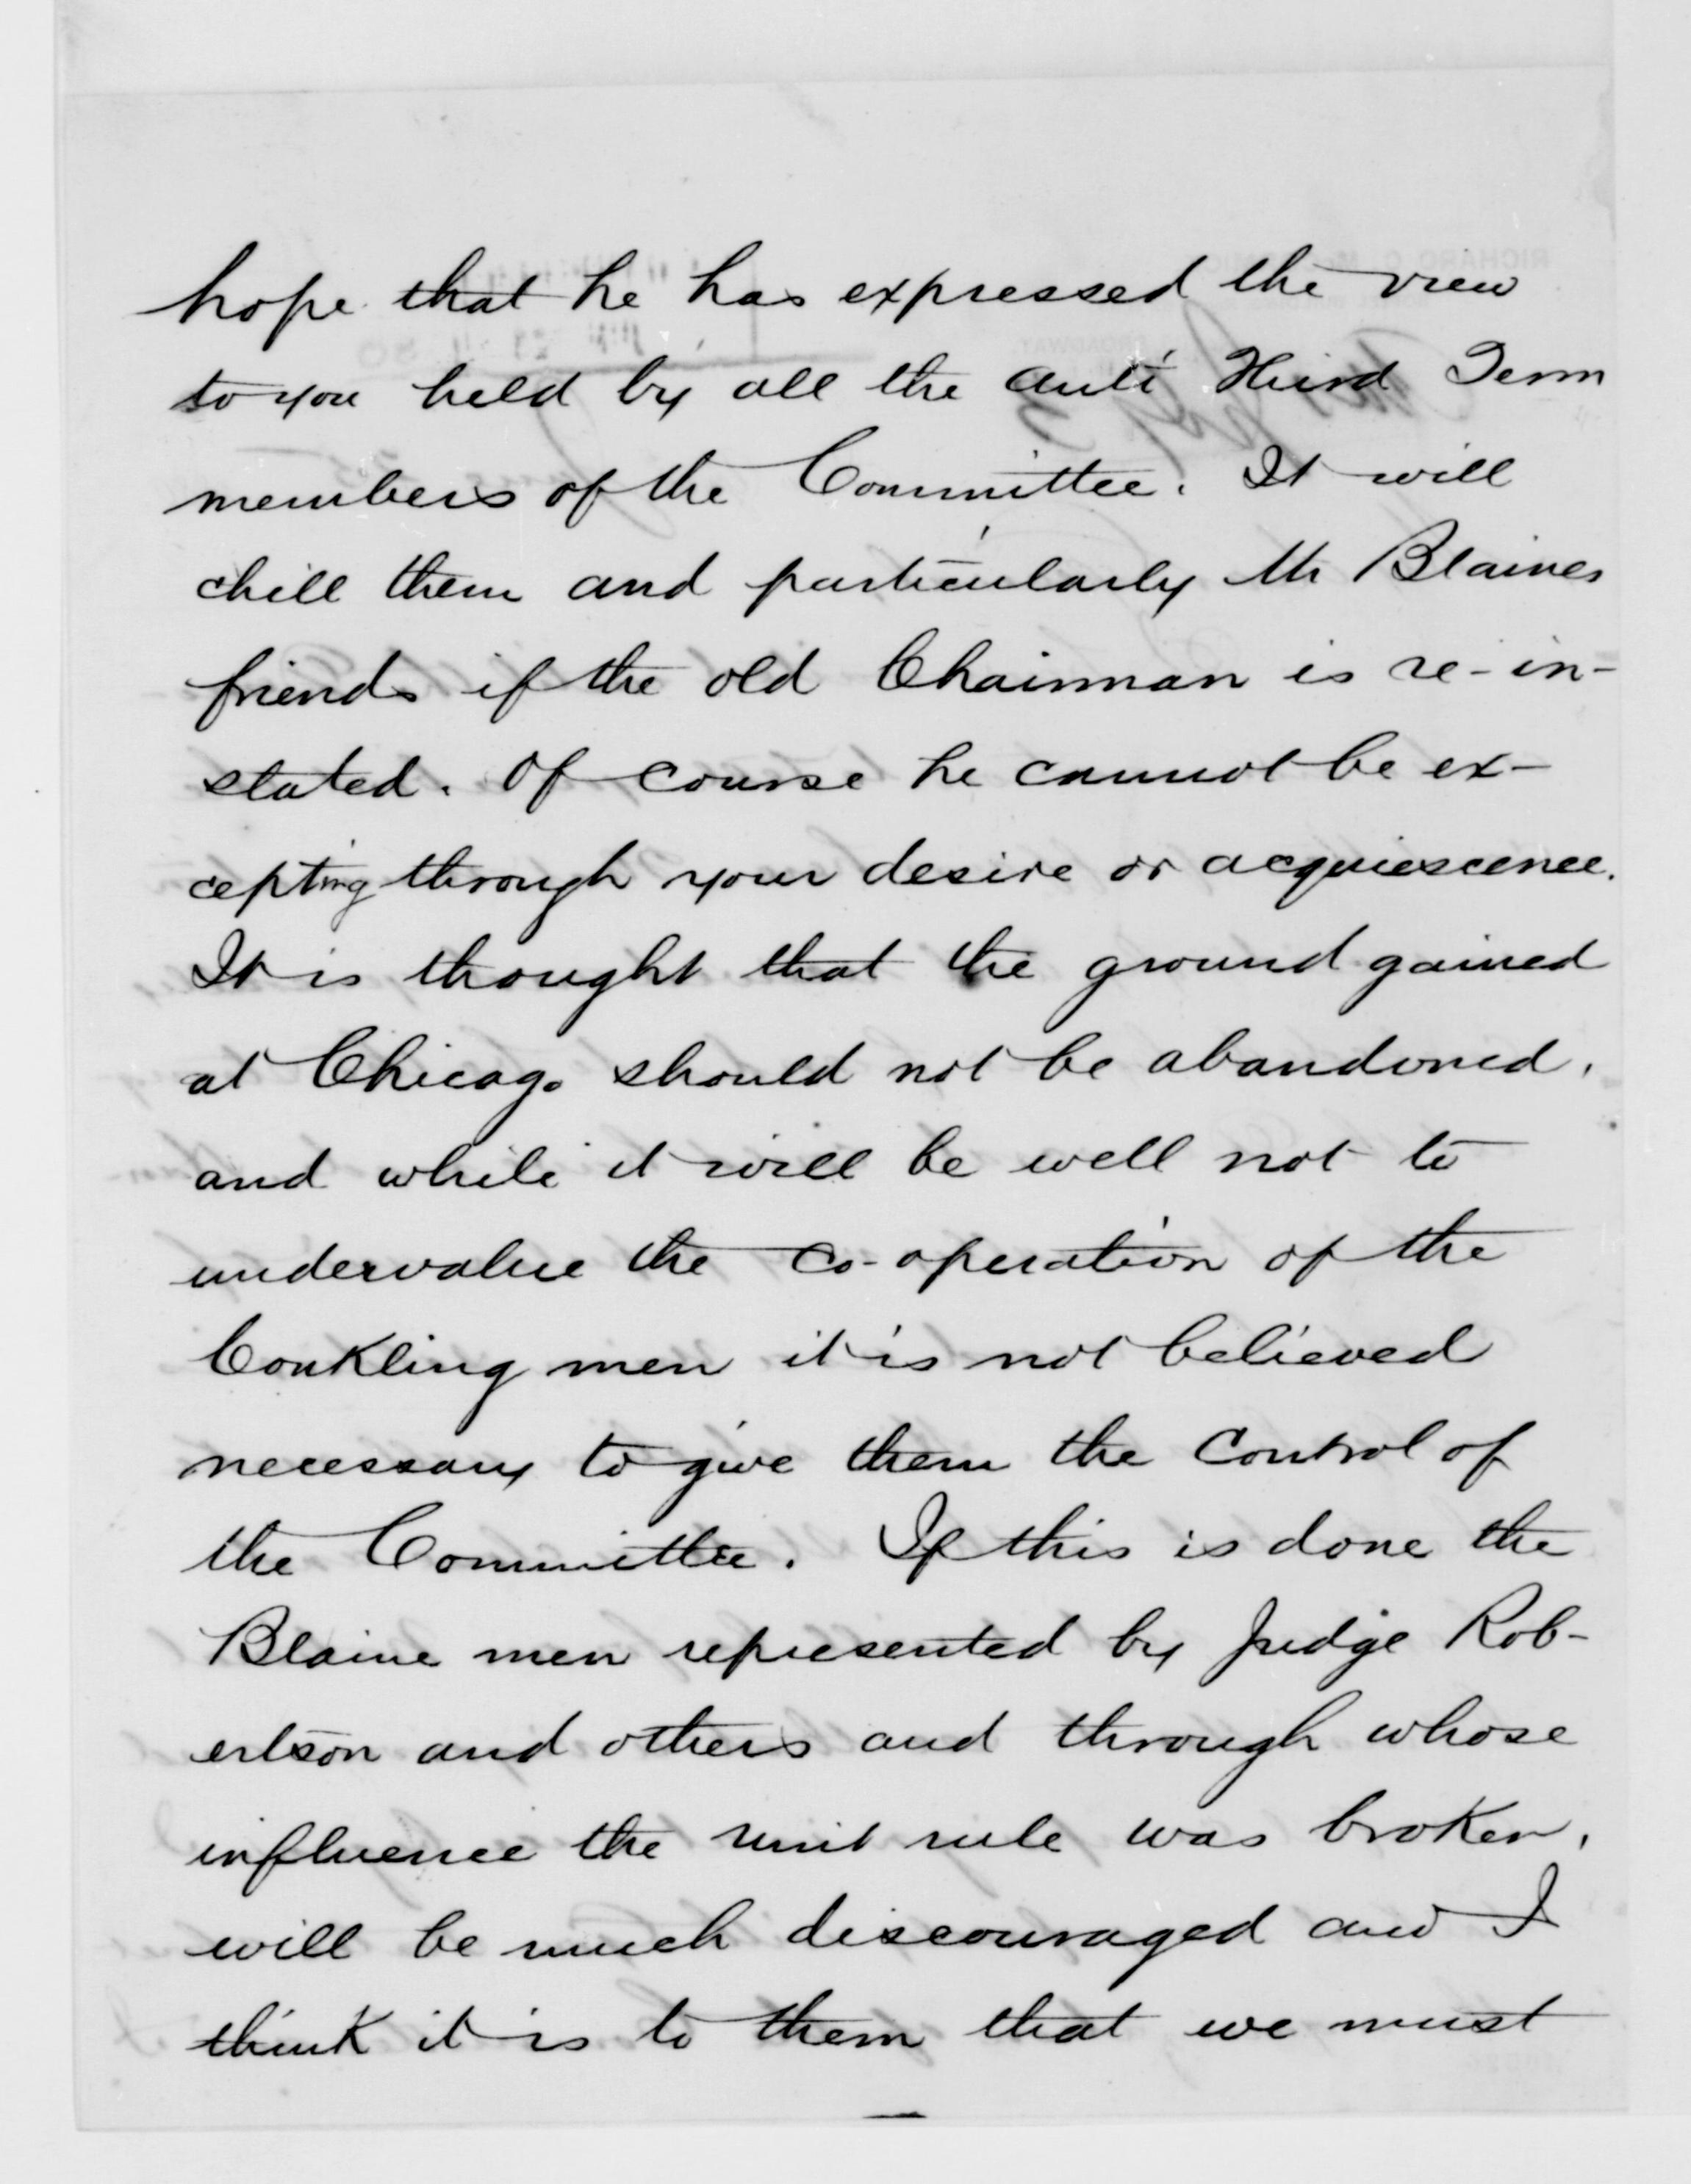 hope that he has expressed the view
to you held by all the anti Third Term
members of the Committee. It will
chill them and particularly Mr Blaines
friends if the old Chairman is re-in-
stated. Of course he cannot be ex-
cepting through your desire or acquiescence.
It is thought that the ground gained
at Chicago should not be abandoned,
and while it will be well not to
undervalue the co-operation of the
Conkling men it is not believed
necessary to give them the control of
the Committee. If this is done the
Blaine men represented by Judge Rob-
ertson and others and through whose
influence the unit rule was broken,
will be much discouraged and I
think it is to them that we must